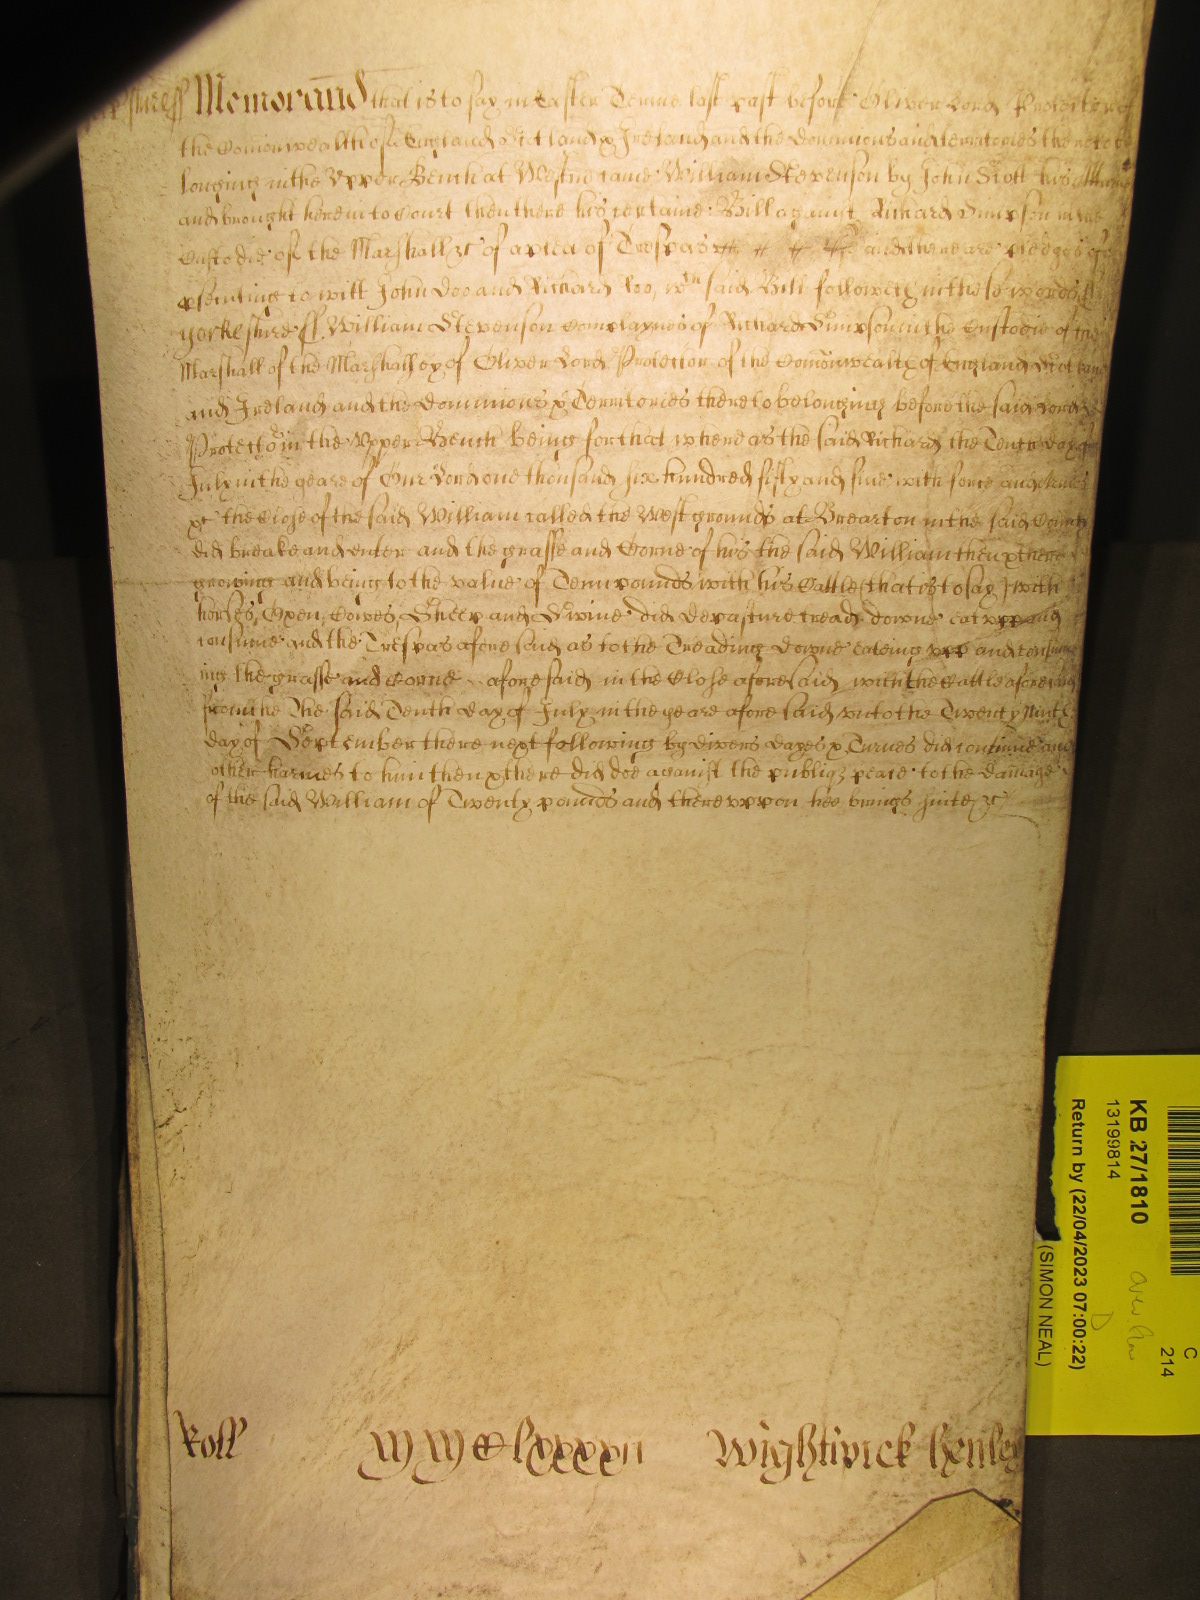 Yorkshire ss Memorand that is to say in Easter Terme last past before Oliver Lord Protector of
the Comonwealth of England Scotland & Ireland and the Dominions and territories thereto be
longing in the Upper Bench at Westmr came William Stevenson by John Scott his Attorney
and brought here into Court then there his certaine Bill against Richard Simpson in the
Custodie of the Marshall &c of a plea of Trespas and there are pledges of
psecuting to witt John Doo and Richard Roo, wch said Bill followeth in these words
Yorkeshire ss. William Stevenson Complaynes of Richard Simpson in the Custodie of the
Marshall of the Marshalsey of Oliver Lord Protector of the Comonwealth of England Scotland
and Ireland and the Dominions & Territories thereto belonging before the said Lord
Protector in the Upper Bench being for that whereas the said Richard the Tenth day of
July in the yeare of Our Lord one thousand six hundred fifty and five with force and Armes
&c the Close of the said William called the West grounds at Brearton in the said County
did breake and enter and the grasse and Corne of his the said William then & there
growing and being to the value of Tenn pounds with his Cattle (that is to say) with
horses, Oxen, Cowes, Sheep and Swine did depasture tread downe eat upp and
consume and the Trespas aforesaid as to the Treading downe eateing upp and consum
ing the grasse and Corne aforesaid in the Close aforesaid with the Cattle aforesaid
from the The said Tenth day of July in the yeare aforesaid unto the Twenty Ninth
day of September there next following by divers dayes & Turnes did continue and
other harmes to him then & there did doe against the publiq peace to the damage
of the said William of Twenty pounds and thereuppon hee brings suite &c
Roll MMClxxxxii Wightwick henley
KB 27/1810
13199814
Return by (22/04/2023 07:00:22)
(SIMON NEAL)
C
214
D